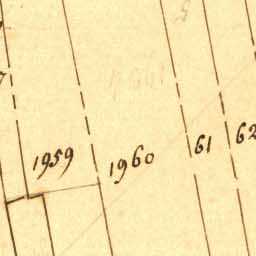 1959 1960 61 62